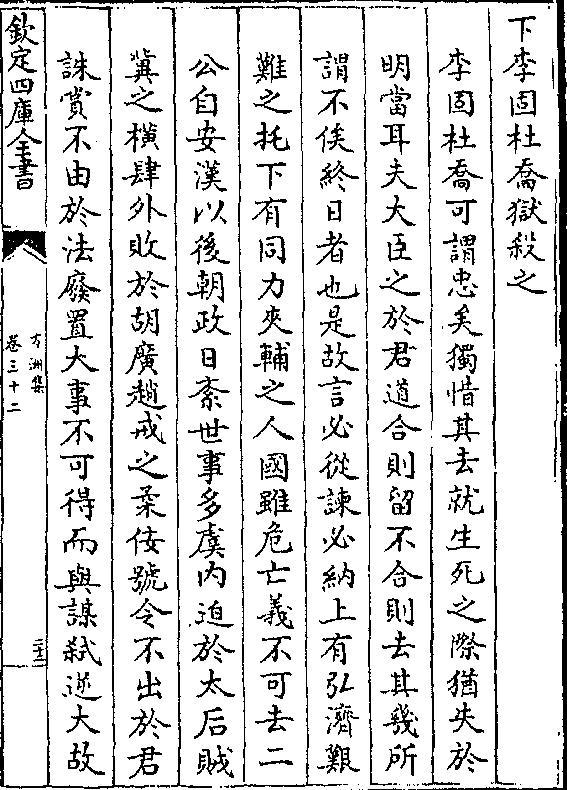 下李固杜喬獄殺之
李固杜喬可謂忠矣獨惜其去就生死之際猶失於
明當耳夫大臣之於君道合則留不合則去其幾所
謂不俟終日者也是故言必從諫必納上有弘濟艱
難之托下有同力夾輔之人國雖危亡義不可去二
公自安漢以後朝政日紊世事多虞内迫於太后賊
冀之横肆外敗於胡廣趙戒之柔佞號令不出於君
誅賞不由於法廢置大事不可得而與謀弑逆大故
欽定四庫全書
方洲集
卷三十二
二十二